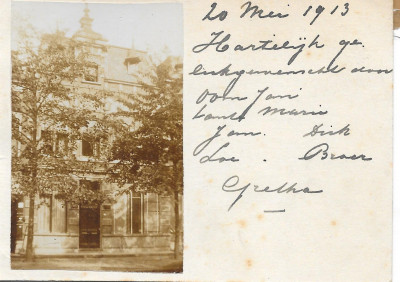 20 Mei 1913
Hartelijk ge-
lukgewenscht door
Oom Jan
tante Marie
Jan. Dirk
Loe . Broer
Gretha